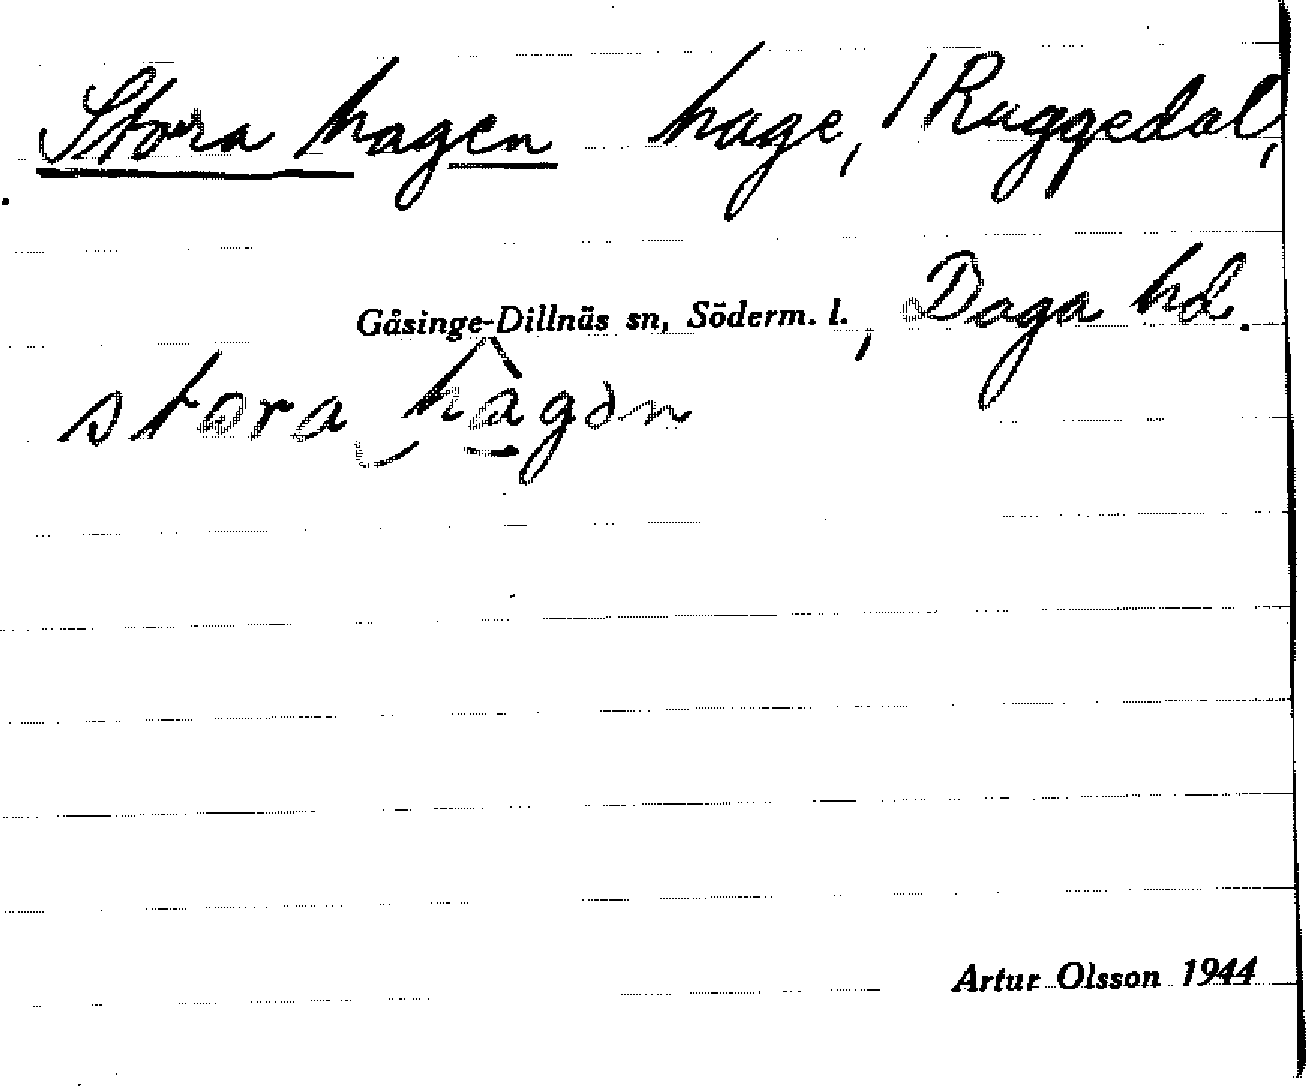 Stora hagen hage, /Ruggedal,
Gåsinge-Dillnäs sn, Söderm. l., Daga hd.
stora hagən
Artur Olsson 1944